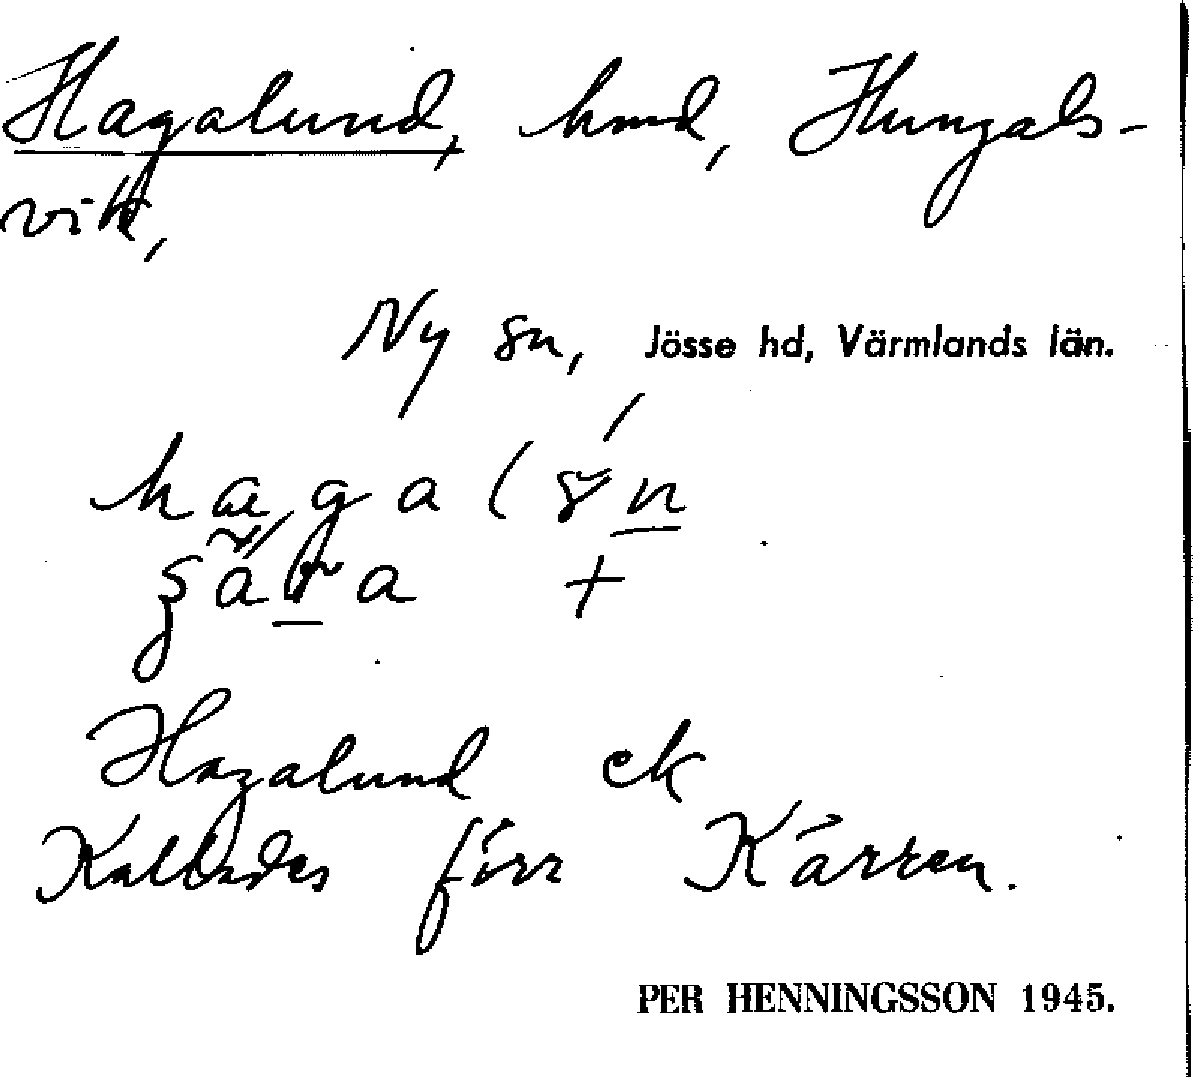 Hagalund, hmd, Hungals-
vik,
Ny sn, Jösse hd, Värmlands län.
Hagalund ek
Kallades förr Kärren.
PER HENNINGSSON 1945.